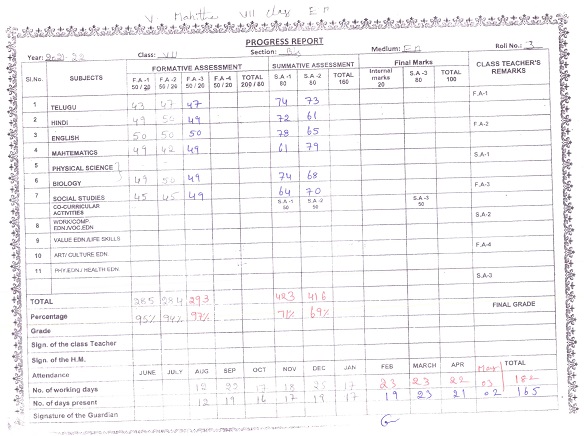 V Mahitha VII class E M
PROGRESS REPORT
Year: 2021 22 Class: VII Section: Medium: E M Roll No.: 3
Sl.No. SUBJECTS FORMATIVE ASSESSMENT SUMMATIVE ASSESSMENT Final Marks CLASS TEACHER'S REMARKS
F.A -1 50 / 20 F.A -2 50 / 20 F.A -3 50 / 20 F.A -4 50 / 20 TOTAL 200 / 80 S.A -1 80 S.A -2 80 TOTAL 160 Internal marks 20 S.A -3 80 TOTAL 100
F.A-1
1 TELUGU 43 47 47 74 73
2 HINDI 49 50 49 72 61
F.A-2
3 ENGLISH 50 50 50 78 65
4 MAHTEMATICS 49 42 49 61 79
S.A-1
5 PHYSICAL SCIENCE
6 BIOLOGY 49 50 49 74 68
F.A-3
7 SOCIAL STUDIES 45 45 49 64 70
CO-CURRICULAR ACTIVITIES S.A -1 50 S.A -2 50 S.A -3 50
S.A-2
8 WORK/COMP. EDN./VOC.EDN
9 VALUE EDN./LIFE SKILLS
F.A-4
10 ART/ CULTURE EDN.
11 PHY.EDN./ HEALTH EDN.
S.A-3
TOTAL 285 284 293 423 416
FINAL GRADE
Percentage 95% 94% 97% 71% 69%
Grade
Sign. of the class Teacher
Sign. of the H.M.
Attendance JUNE JULY AUG SEP OCT NOV DEC JAN FEB MARCH APR May TOTAL
No. of working days 12 17 18 25 17 23 23 22 03 182
No. of days present 12 19 16 17 19 17 19 23 21 02 165
Signature of the Guardian